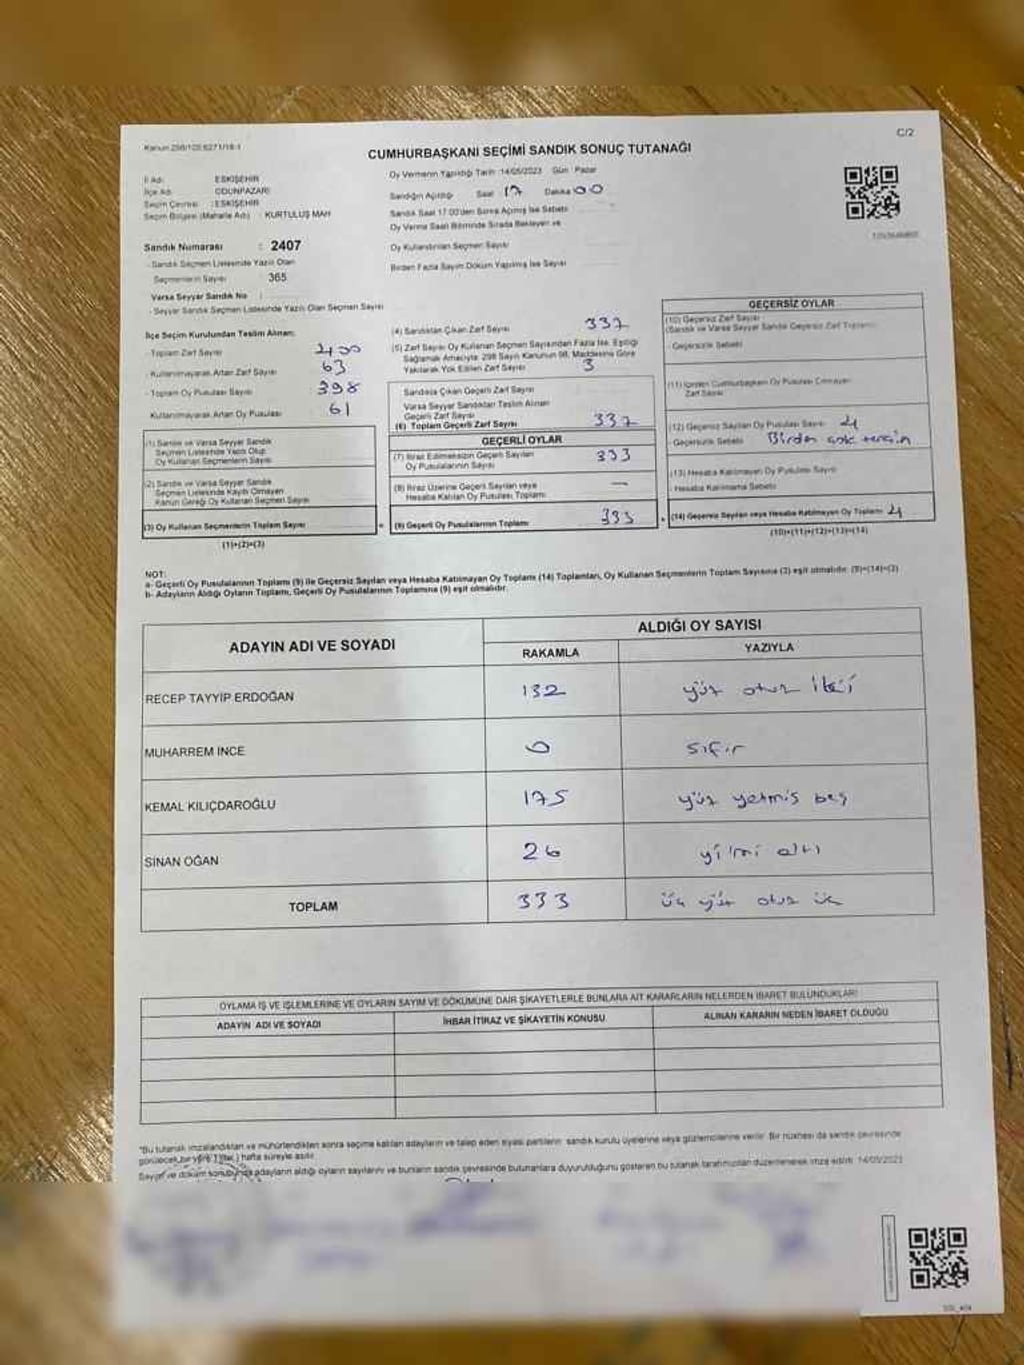 C/2
Kanun:298/105;6271/18-1
CUMHURBAŞKANI SEÇİMİ SANDIK SONUÇ TUTANAĞI
İl Adı: ESKİŞEHİR
İlçe Adı ODUNPAZARI
Seçim Çevresi :ESKİŞEHİR
Seçim Bölgesi (Mahalle Adı) : KURTULUŞ MAH
Oy Vermenin Yapıldığı Tarih :14/05/2023 Gün : Pazar
Sandığın Açıldığı Saat 17 Dakika 00
Sandık Saat 17:00'den Sonra Açılmış İse Sebebi
Oy Verme Saati Bitiminde Sırada Bekleyen ve
Oy Kullandırılan Seçmen Sayısı
Birden Fazla Sayım Döküm Yapılmış İse Sayısı
Sandık Numarası : 2407
- Sandık Seçmen Listesinde Yazılı Olan
Seçmenlerin Sayısı 365
Varsa Seyyar Sandık No
- Seyyar Sandık Listesinde Yazılı Olan Seçmen Sayısı
İlçe Seçim Kurulundan Teslim Alınan:
- Toplam Zarf Sayısı 400
- Kullanılmayarak Artan Zarf Sayısı 63
- Toplam Oy Pusulası Sayısı 398
Kullanılmayarak Artan Oy Pusulası 61
(1) Sandık ve Varsa Seyyar Sandık
Seçmen Listesinde Yazılı Olup
Oy Kullanan Seçmenlerin Sayısı
(2) Sandık ve Varsa Seyyar Sandık
Seçmen Listesinde Kaydı Olmayan
Kanun Gereği Oy Kullanan Seçmen Sayısı
(3) Oy Kullanan Seçmenlerin Toplam Sayısı =
(1)+(2)=(3)
(4) Sandıktan Çıkan Zarf Sayısı 337
(5) Zarf Sayısı Oy Kullanan Seçmen Sayısından Fazla İse, Eşitliği
Sağlamak Amacıyla 298 Sayılı Kanunun 98. Maddesine Göre
Yakılarak Yok Edilen Zarf Sayısı 3
Sandıkta Çıkan Geçerli Zarf Sayısı
Varsa Seyyar Sandıktan Teslim Alınan
Geçerli Zarf Sayısı
(6) Toplam Geçerli Zarf Sayısı 337
GEÇERLİ OYLAR
(7) İtiraz Edilmeksizin Geçerli Sayılan
Oy Pusulalarının Sayısı 333
(8) İtiraz Üzerine Geçerli Sayılan veya
Hesaba Katılan Oy Pusulası Toplamı —
(9) Geçerli Oy Pusulalarının Toplamı 333 +
GEÇERSİZ OYLAR
(10) Geçersiz Zarf Sayısı
(Sandık ve Varsa Seyyar Sandık Geçersiz Zarf Toplamı)
- Geçersizlik Sebebi
(11) İçinden Cumhurbaşkanı Oy Pusulası Çıkmayan
Zarf Sayısı
(12) Geçersiz Sayılan Oy Pusulası Sayısı 4
- Geçersizlik Sebebi Birden çok tercih
(13) Hesaba Katılmayan Oy Pusulası Sayısı
- Hesaba Katılmama Sebebi
(14) Geçersiz Sayılan veya Hesaba Katılmayan Oy Toplamı 4
(10)+(11)+(12)+(13)=(14)
NOT:
a- Geçerli Oy Pusulalarının Toplamı (9) ile Geçersiz Sayılan veya Hesaba Katılmayan Oy Toplamı (14) Toplamları, Oy Kullanan Seçmenlerin Toplam Sayısına (3) eşit olmalıdır. (9)+(14)=(3)
b- Adayların Aldığı Oyların Toplamı, Geçerli Oy Pusulalarının Toplamına (9) eşit olmalıdır.
ADAYIN ADI VE SOYADI ALDIĞI OY SAYISI
RAKAMLA YAZIYLA
RECEP TAYYİP ERDOĞAN 132 yüz otuz iki
MUHARREM İNCE 0 sıfır
KEMAL KILIÇDAROĞLU 175 yüz yetmiş beş
SİNAN OĞAN 26 yirmi altı
TOPLAM 333 üç yüz otuz üç
OYLAMA İŞ VE İŞLEMLERİNE VE OYLARIN SAYIM VE DÖKÜMÜNE DAİR ŞİKAYETLERLE BUNLARA AİT KARARLARIN NELERDEN İBARET BULUNDUKLARI
ADAYIN ADI VE SOYADI İHBAR İTİRAZ VE ŞİKAYETİN KONUSU ALINAN KARARIN NEDEN İBARET OLDUĞU
*Bu tutanak imzalandıktan ve mühürlendikten sonra seçime katılan adayların ve talep eden siyasi partilerin sandık kurulu üyelerine veya gözlemcilerine verilir. Bir nüshası da sandık çevresinde
görülecek bir yere 1 (bir) hafta süreyle asılır.
Sayım ve döküm sonucunda adayların aldığı oyların sayılarını ve bunların sandık çevresinde bulunanlara duyurulduğunu gösteren bu tutanak tarafımızdan düzenlenerek imza edildi. 14/05/2023